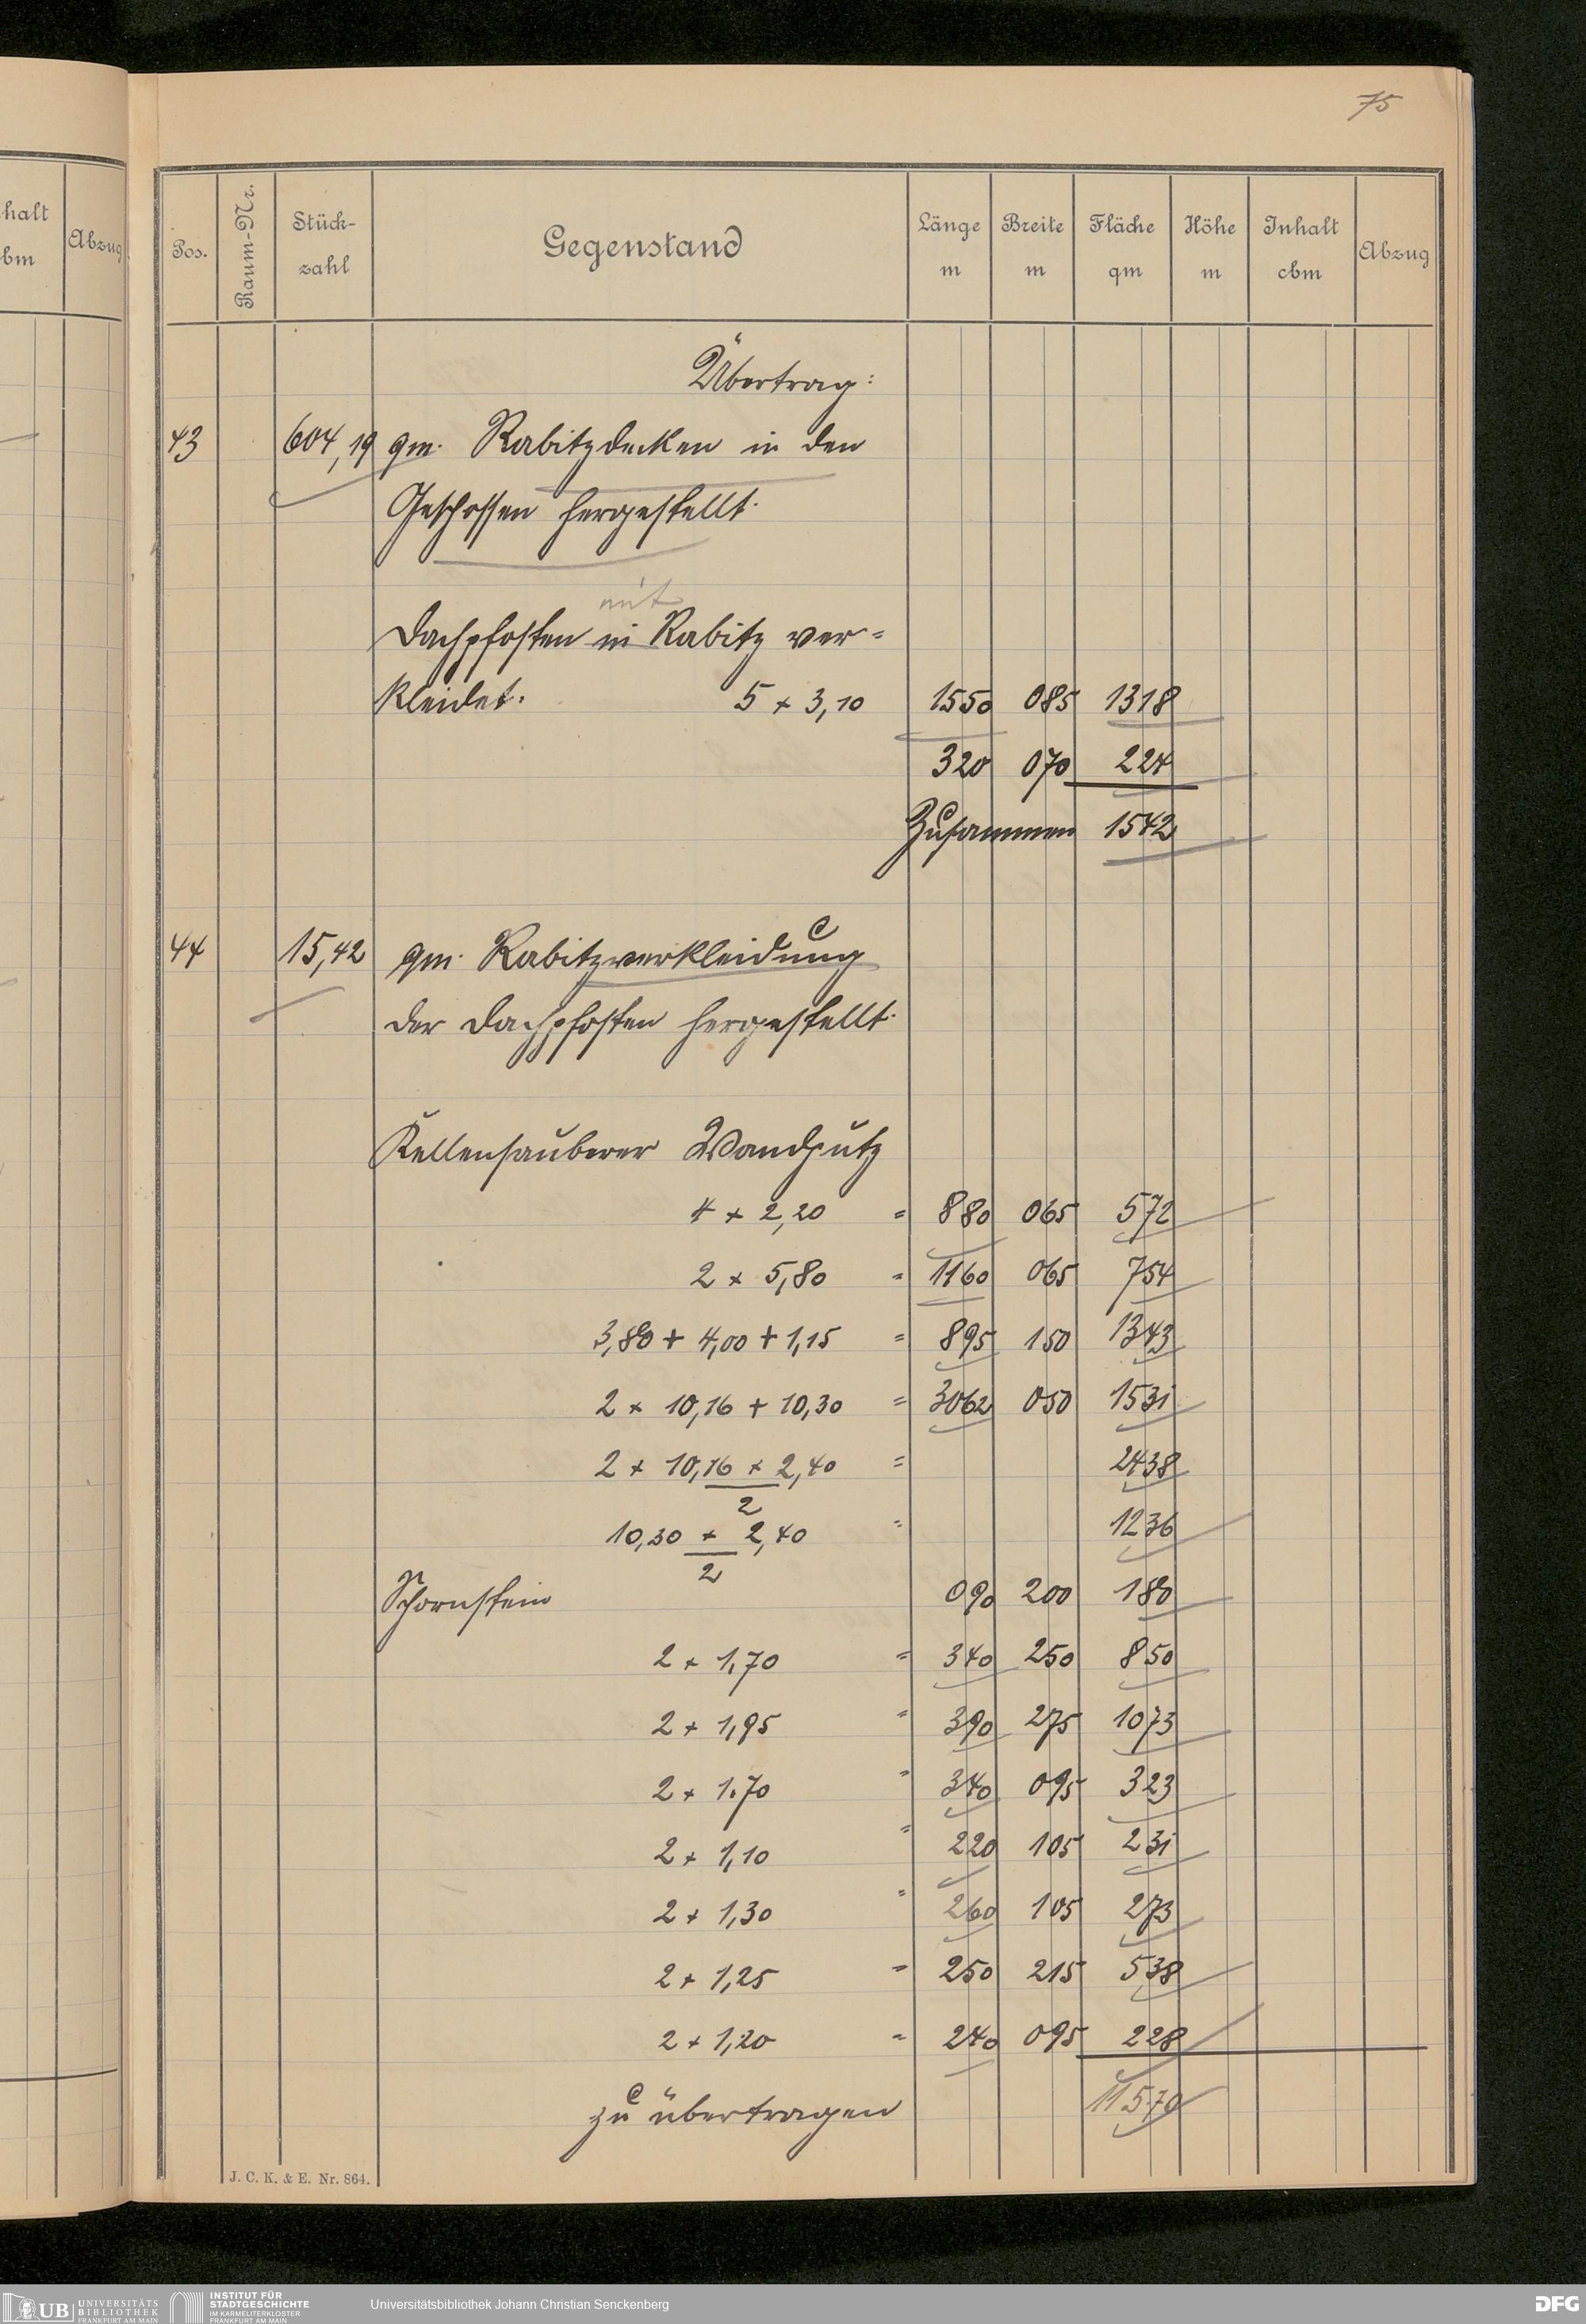 75
halt
bm
Abzug
Pos.
Raum-Nr.
Stück-
zahl
Gegenstand
Länge
m
Breite
m
Fläche
qm
Höhe
m
Inhalt
cbm
Abzug
Übertrag:
43 604,19 qm. Rabitzdecken in den
Geschossen hergestellt.
mit
Dachpfosten in Rabitz ver=
kleidet. 5 x 3,10 1550 085 1318
320 070 224
Zusammen 1542
44 15,42 qm. Rabitzverkleidung
der Dachpfosten hergestellt.
Kellensauberer Wandputz
4 x 2,20 = 880 065 572
2 x 5,80 = 1160 065 754
3,80 + 4,00 + 1,15 = 895 150 1343
2 x 10,16 + 10,30 = 3062 050 1531
2 x 10,16 x 2,40 = 2438
2
10,30 x 2,40 = 1236
2
Schornstein 090 200 180
2 x 1,70 = 340 250 850
2 x 1,95 = 390 275 1073
2 x 1.70 = 340 095 323
2 x 1,10 = 220 105 231
2 x 1,30 = 260 105 273
2 x 1,25 = 250 215 538
2 x 1,20 = 240 095 228
zu übertragen 11570
J. C. K. & E. Nr. 864.
UB UNIVERSITÄTS
BIBLIOTHEK
FRANKFURT AM MAIN
INSTITUT FÜR
STADTGESCHICHTE
IM KARMELITERKLOSTER
FRANKFURT AM MAIN
Universitätsbibliothek Johann Christian Senckenberg
DFG